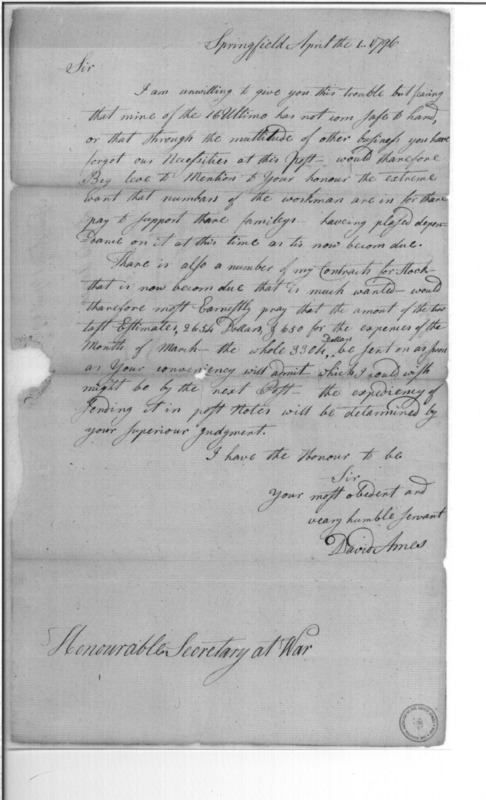 Springfield April the 1. 1796
Sir
I am unwilling to give you this trouble but fearing
that mine of the 16 Ultimo has not com safe to hand,
or that through the multitude of other business you have
forgot our Necessities at this post – would tharefore
Beg leve to Mention to Your honour the extreme
want that numbars of the workman are in for thare
pay to support thare famileys – haveing plased depen-
dance on it at this time as tis now becom due.
Thare is also a number of my Contracts for Stock –
that is now becom due that is much wanted – would
tharefore most Earnestly pray that the amont of the two
last Estimates, 2654 Dollars, & 650 for the expences of the
Months of March – the whole 3304 Dollars, be sent on as soon
as Your conveniency will admit which I could wish
might be by the next Post – the expediency of
sending it in post Notes will be detarmined by
your superiour Judgment.
I have the Honour to be
Sir
Your most obedent and
veary humble servant
David Ames
Honourable Secretary at War